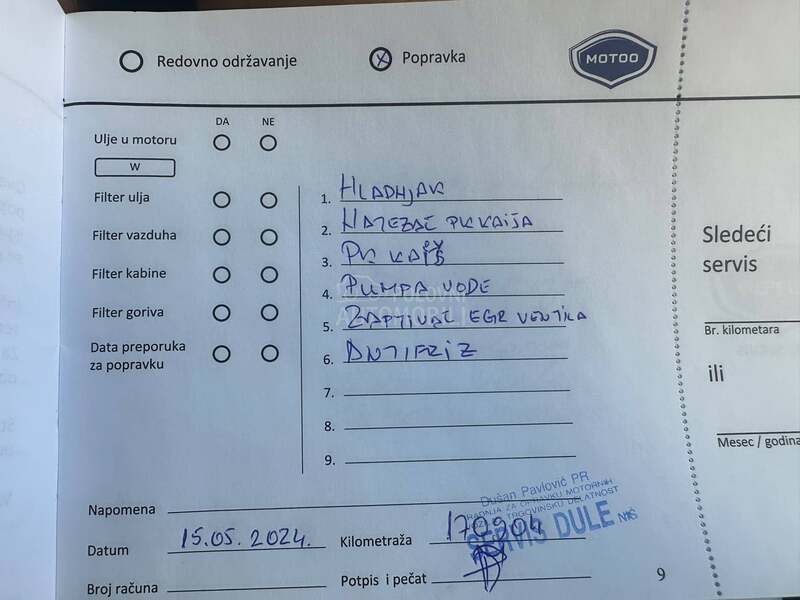 Redovno održavanje
Popravka
MOTOO
DA NE
Ulje u motoru
W
Filter ulja
Filter vazduha
Filter kabine
Filter goriva
Data preporuka
za popravku
1. HLADNJAK
2. NATEZAČ PK KAIŠA
3. PK KAIŠ
4. PUMPA VODE
5. ZAPTIVAČ EGR VENTILA
6. ANTIFRIZ
7.
8.
9.
Sledeći
servis
Br. kilometara
ili
Mesec / godina
Napomena
Datum 15.05.2024.
Kilometraža 170904
Broj računa
Potpis i pečat
Dušan Pavlović PR
RADNJA ZA OPRAVKU MOTORNIH
TRGOVINSKU DELATNOST
SERVIS DULE NIŠ
9